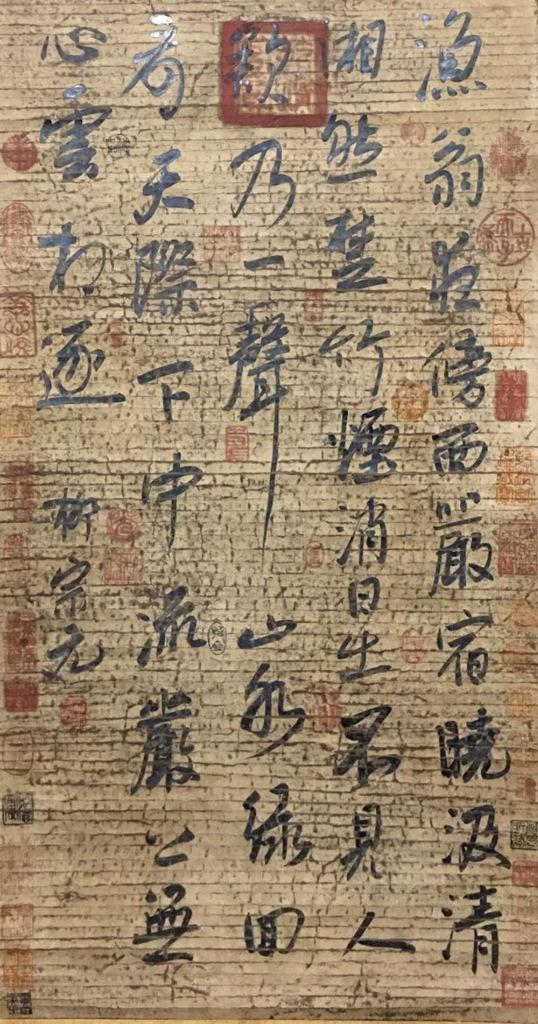 漁翁夜傍西巖宿曉汲清
湘然楚竹煙消日出不見人
欸乃一聲山水綠回
看天際下中流巖上無
心雲相逐 柳宗元